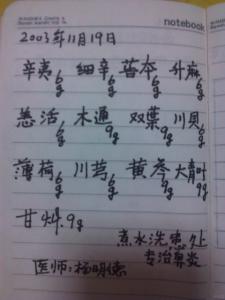 notebook
2003年11月19日
辛夷6g 细辛6g 藁本6g 升麻6g
羌活6g 木通9g 双葉6g 川贝6g
薄荷6g 川芎9g 黄芩9g 大青叶9g
甘草9g
煮水洗患处
专治鼻炎
医师:杨明德